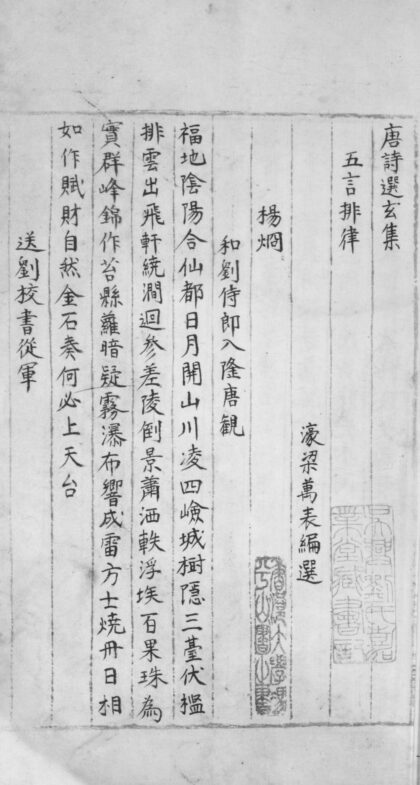 唐詩選玄集
五言排律
濠梁萬表編選
楊烱
和劉侍郎入隆唐觀
福地陰陽合仙都日月開山川凌四嶮城樹隱三臺伏檻
排雲出飛軒繞澗迴參差陵倒景蕭洒軼浮埃石果珠為
實群峰錦作苔縣蘿暗疑霧瀑布響成雷方士燒丹日相
如作賦財自然金石奏何必上天台
送劉挍書從軍